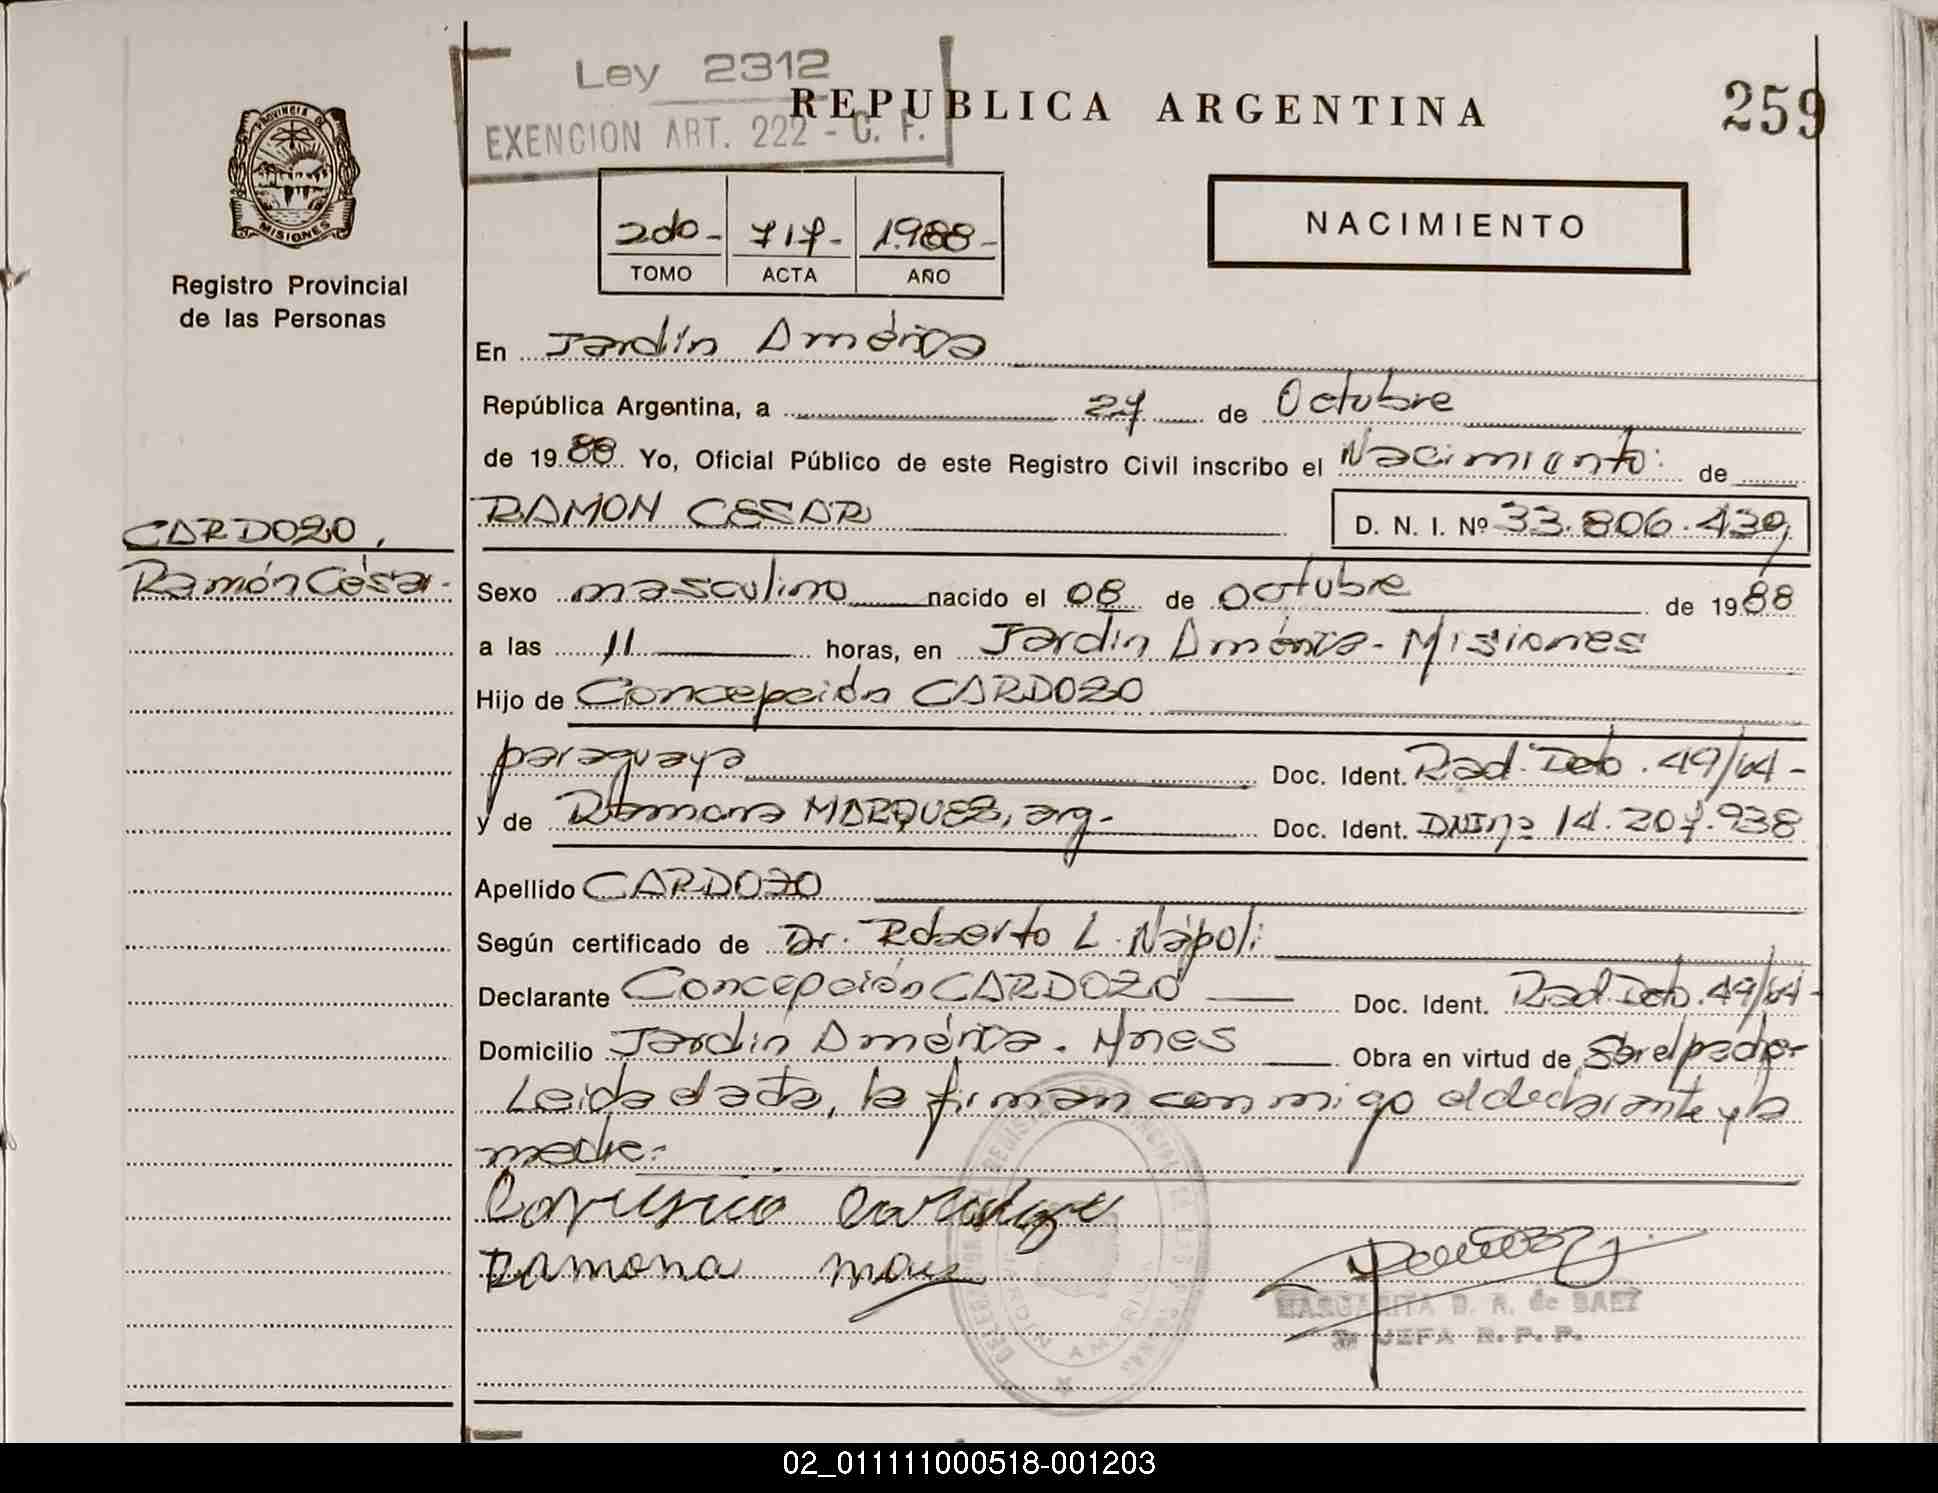 Ley 2312
EXENCION ART. 222 - C. F.
REPUBLICA ARGENTINA
259
PROVINCIA DE
MISIONES
Registro Provincial
de las Personas
2do- 717- 1.988-
TOMO ACTA AÑO
NACIMIENTO
En Jardín América
República Argentina, a 27 de Octubre
de 1988 Yo, Oficial Público de este Registro Civil inscribo el Nacimiento: de
RAMON CESAR D. N. I. Nº 33.806.439
CARDOZO,
Ramón César-
Sexo masculino nacido el 08 de octubre de 1988
a las 11 horas, en Jardín América - Misiones
Hijo de Concepción CARDOZO
paraguaya Doc. Ident. Rad. Deb. 49/64-
y de Ramona MARQUEZ, arg- Doc. Ident. DNI nº 14.207.938
Apellido CARDOZO
Según certificado de Dr. Roberto L. Nápoli
Declarante Concepción CARDOZO Doc. Ident. Rad. Deb. 49/64-
Domicilio Jardín América. Mnes Obra en virtud de Ser el padre-
Leida el acta, la firman conmigo el declarante y la
madre-
Ramona
MARGARITA D. R. de BAEZ
JEFA R. P. P.
02_011111000518-001203